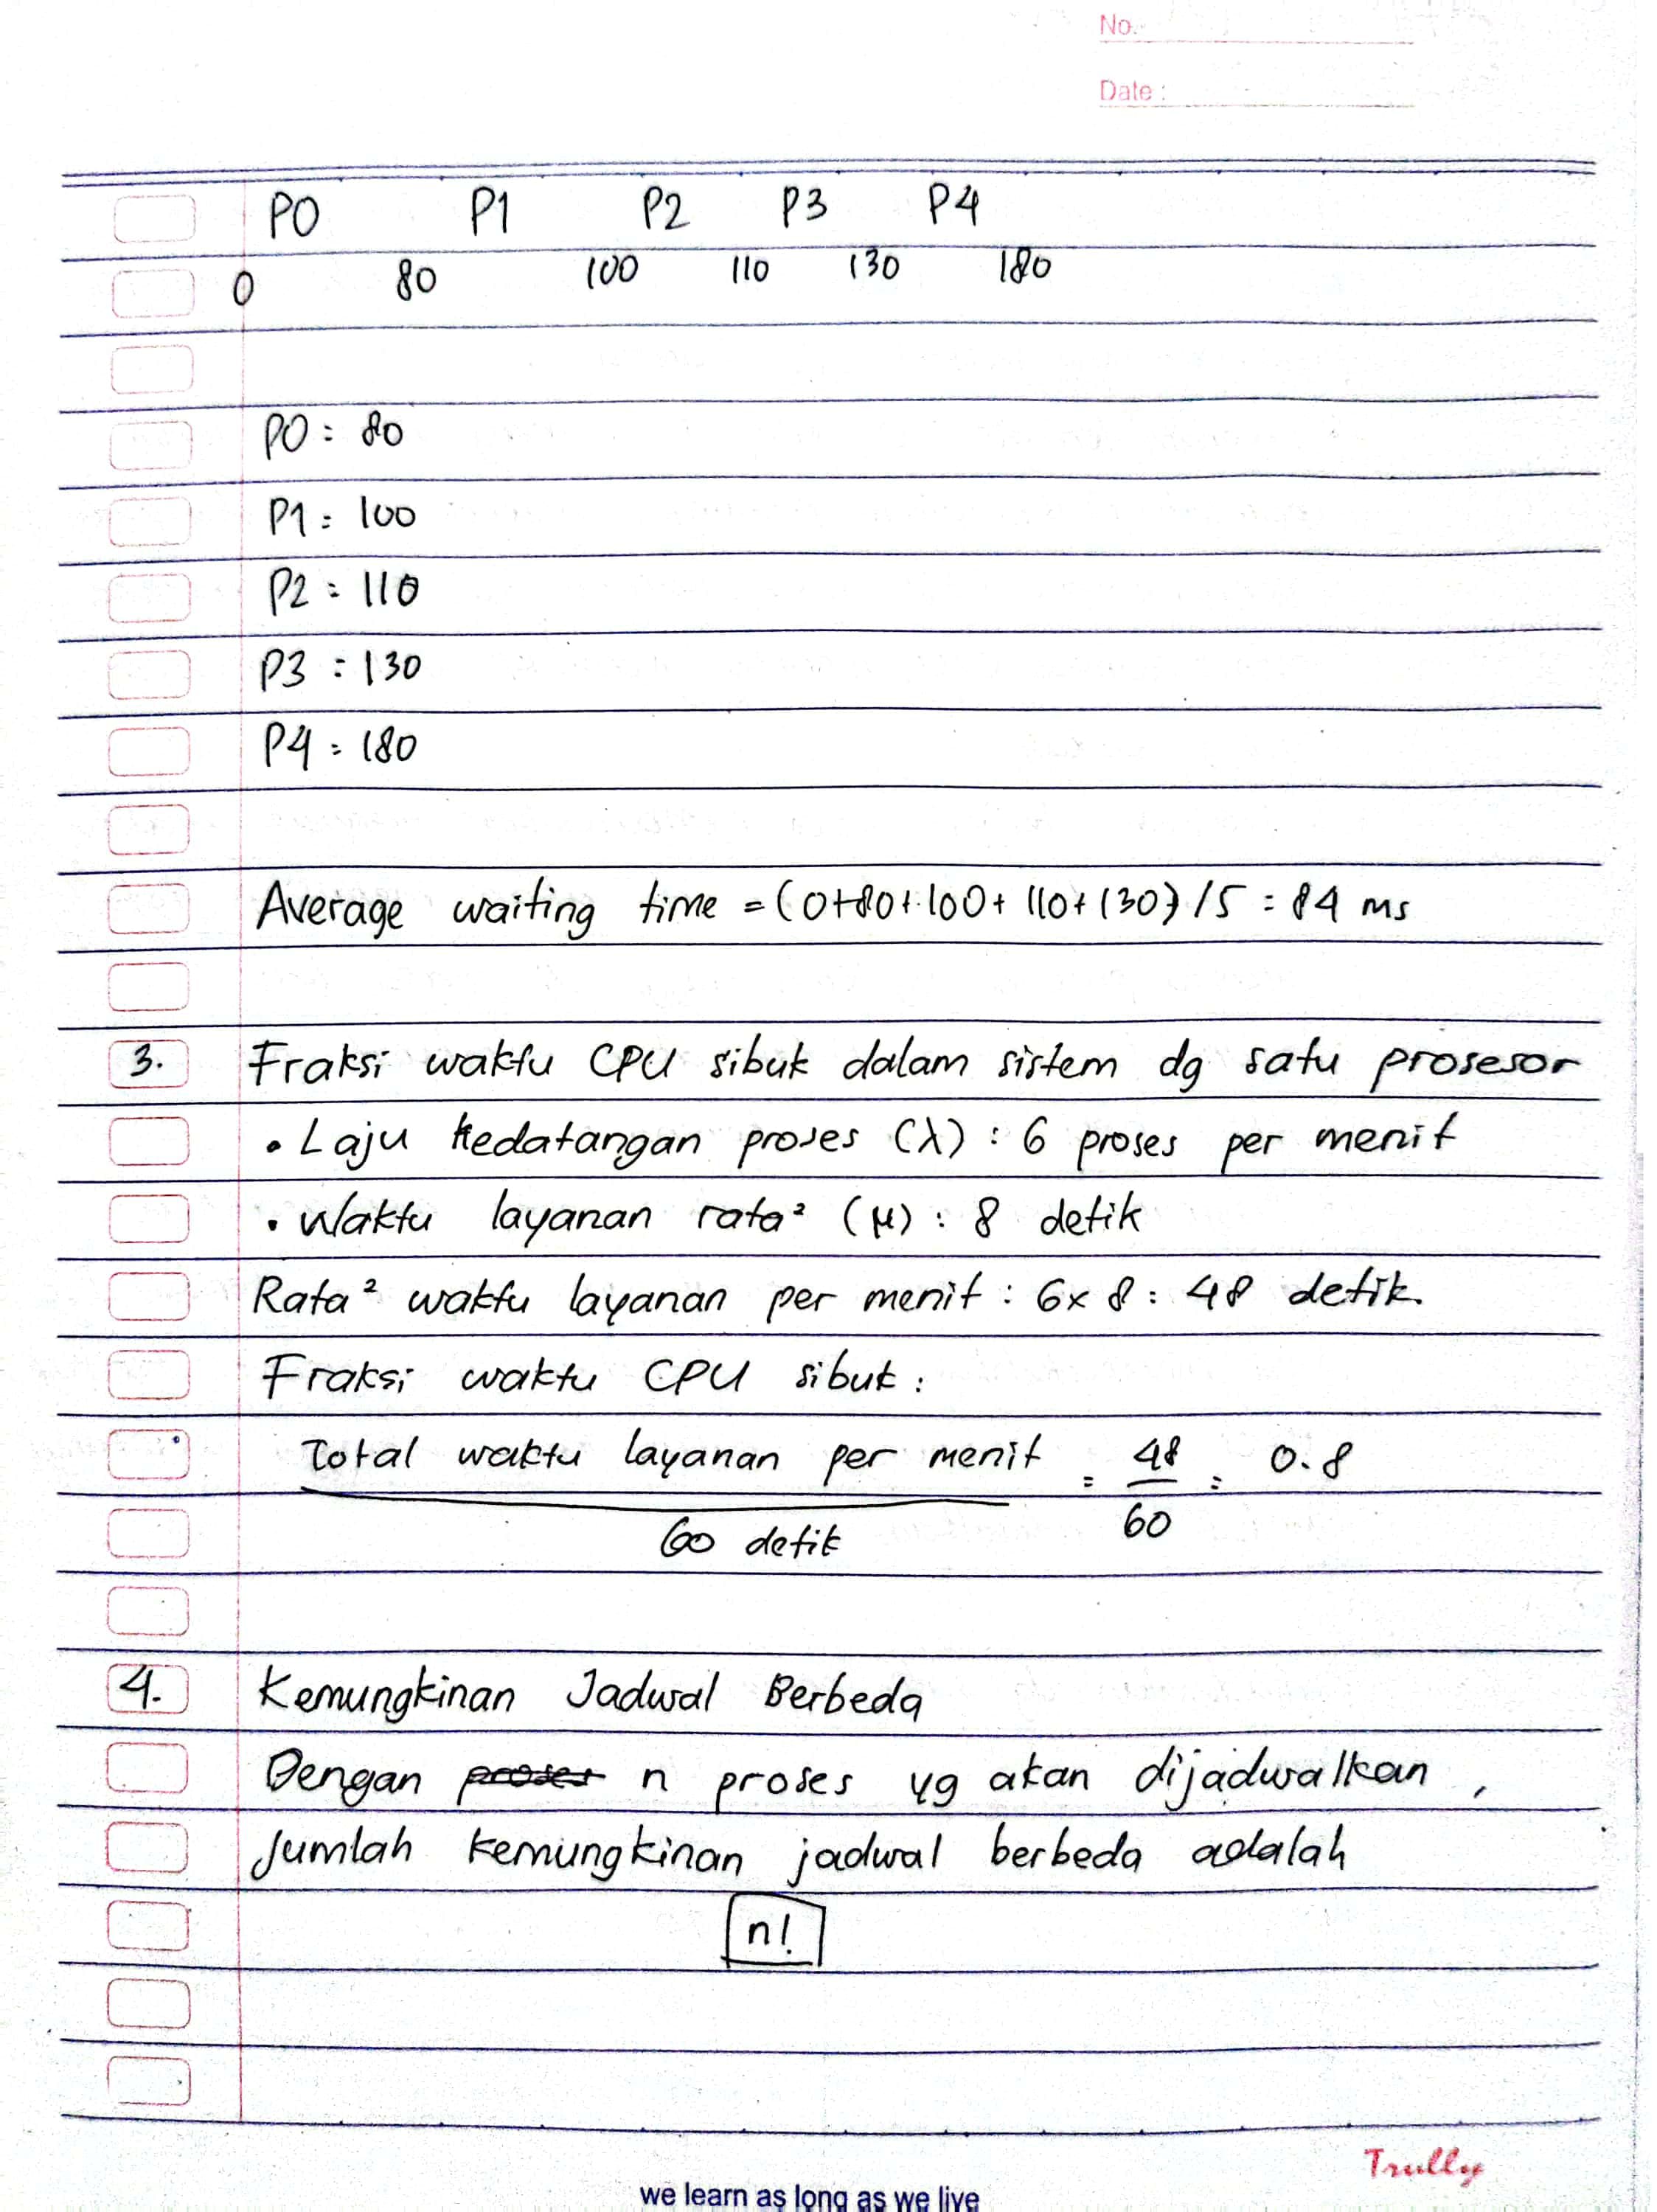 No.
Date :
P0 P1 P2 P3 P4
0 80 100 110 130 180
P0 : 80
P1 : 100
P2 : 110
P3 : 130
P4 : 180
Average waiting time = (0+80+100+110+130)/5 = 84 ms
3. Fraksi waktu CPU sibuk dalam sistem dg satu prosesor
• Laju kedatangan proses (λ) : 6 proses per menit
• Waktu layanan rata² (μ) : 8 detik
Rata² waktu layanan per menit : 6x8 = 48 detik.
Fraksi waktu CPU sibuk :
Total waktu layanan per menit = 48 = 0.8
60 detik 60
4. Kemungkinan Jadwal Berbeda
Dengan proses n proses yg akan dijadwalkan,
Jumlah kemungkinan jadwal berbeda adalah
n!
Trully
we learn as long as we live